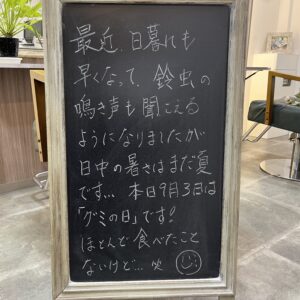 最近、日暮れも
早くなって、鈴虫の
鳴き声も聞こえる
ようになりましたが
日中の暑さはまだ夏
です... 本日9月3日は
「グミの日」です!
ほとんど食べたこと
ないけど... 笑